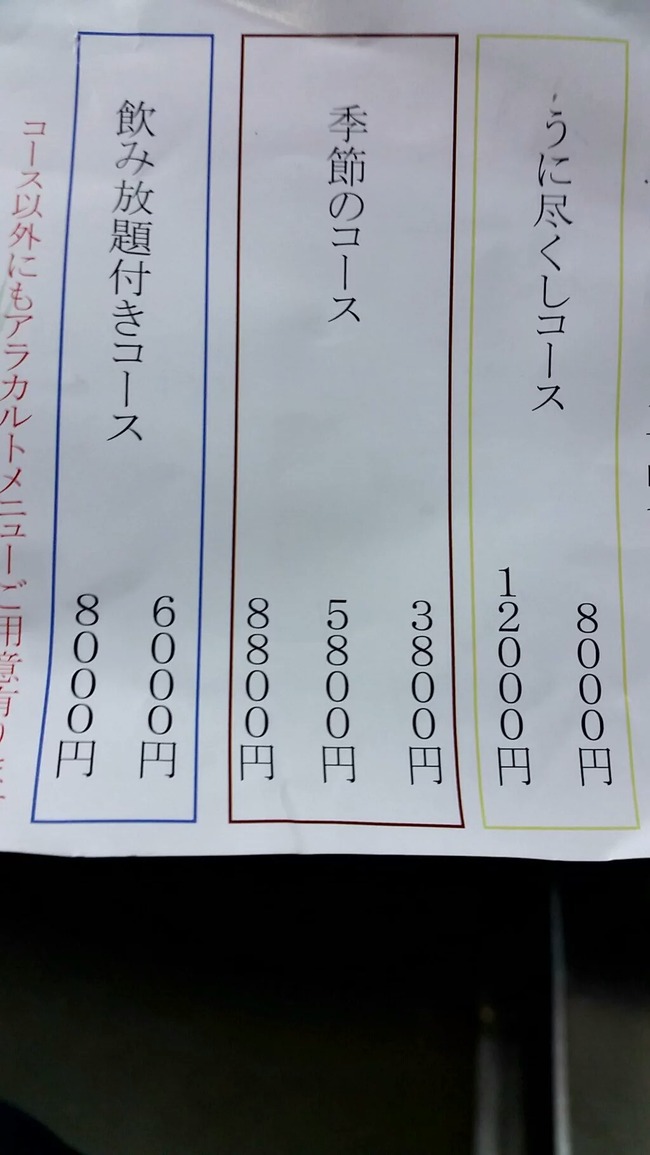 うに尽くしコース
8000円
12000円
季節のコース
3800円
5800円
8800円
飲み放題付きコース
6000円
8000円
コース以外にもアラカルトメニューご用意有り